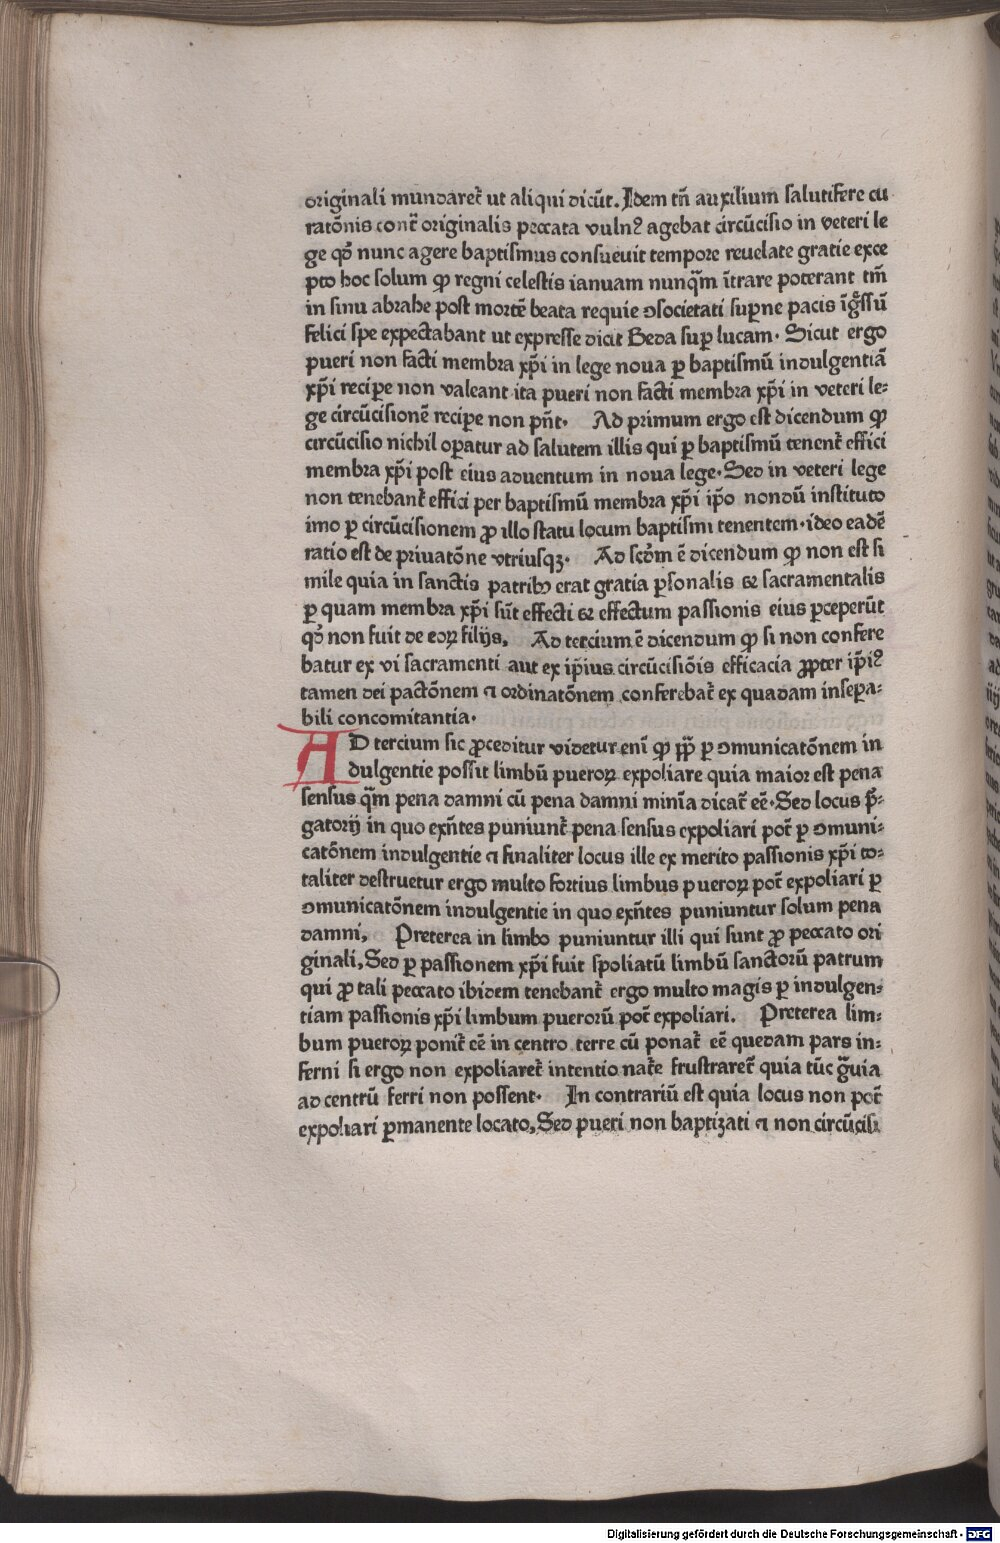 originali mundaret᷑ ut aliqui dicūt. Idem tn̄ auxilium salutifere cu
ratōnis cont᷑ originalis peccata vulnꝰ agebat circūcisio in veteri le
ge qd̕ nunc agere baptismus consueuit tempore reuelate gratie exce
pto hoc solum ꝙ regni celestis ianuam nunqm̄ ītrare poterant tm̄
in sinu abrahe post mortē beata requie ꝯsocietati suꝑne pacis īgͬssū
felici spe expectabant ut expresse dicit Beda suꝑ lucam. Sicut ergo
pueri non facti membra xp̄i in lege noua ꝑ baptismū indulgentiā
xp̄i reciꝑe non valeant ita pueri non facti membra xp̄i in veteri le⸗
ge circūcisionē reciꝑe non pn̄t. Ad primum ergo est dicendum ꝙ
circūcisio nichil oꝑatur ad salutem illis qui ꝑ baptismū tenent᷑ effici
membra xp̄i post eius aduentum in noua lege. Sed in veteri lege
non tenebant᷑ effici per baptismū membra xp̄i ip̄o nondū instituto
imo ꝑ circūcisionem ꝓ illo statu locum baptismi tenentem. ideo eadē
ratio est de priuatōne vtriusqꝫ. Ad scd̕m ē dicendum ꝙ non est si
mile quia in sanctis patribꝰ erat gratia ꝑsonalis et sacramentalis
ꝑ quam membra xp̄i sūt effecti et effectum passionis eius ꝑceperūt
qd̕ non fuit de eoꝝ filijs, Ad tercium ē dicendum ꝙ si non confere
batur ex vi sacramenti aut ex ip̄ius circūcisiōis efficacia ꝓpter ip̄iꝰ
tamen dei pactōnem ⁊ ordinatōnem conferebat᷑ ex quadam inseꝑa⸗
bili concomitantia.
AD tercium sic ꝓceditur videtur eni᷑ ꝙ pp̄ ꝑ ꝯmunicatōnem in
dulgentie possit limbū pueroꝝ expoliare quia maior est pena
sensus qm̄ pena damni cū pena damni minīa dicat᷑ eē. Sed locus pr̄⸗
gatorij in quo exn̄tes puniunt᷑ pena sensus expoliari pot᷑ ꝑ ꝯmuni⸗
catōnem indulgentie ⁊ finaliter locus ille ex merito passionis xp̄i to⸗
taliter destruetur ergo multo fortius limbus pueroꝝ pot᷑ expoliari ꝑ
ꝯmunicatōnem indulgentie in quo exn̄tes puniuntur solum pena
damni, Preterea in limbo puniuntur illi qui sunt ꝓ peccato ori
ginali, Sed ꝑ passionem xp̄i fuit spoliatū limbū sanctorū patrum
qui ꝓ tali peccato ibidem tenebant᷑ ergo multo magis ꝑ indulgen⸗
tiam passionis xp̄i limbum puerorū pot᷑ expoliari. Preterea lim⸗
bum pueroꝝ ponit᷑ eē in centro terre cū ponat᷑ eē quedam pars in⸗
ferni si ergo non expoliaret᷑ intentio nat᷑e frustraret᷑ quia tūc gͣuia
ad centrū ferri non possent. In contrariū est quia locus non pot᷑
expoliari ꝑmanente locato, Sed pueri non baptizati ⁊ non circūcisi
Digitalisierung gefördert durch die Deutsche Forschungsgemeinschaft - DFG